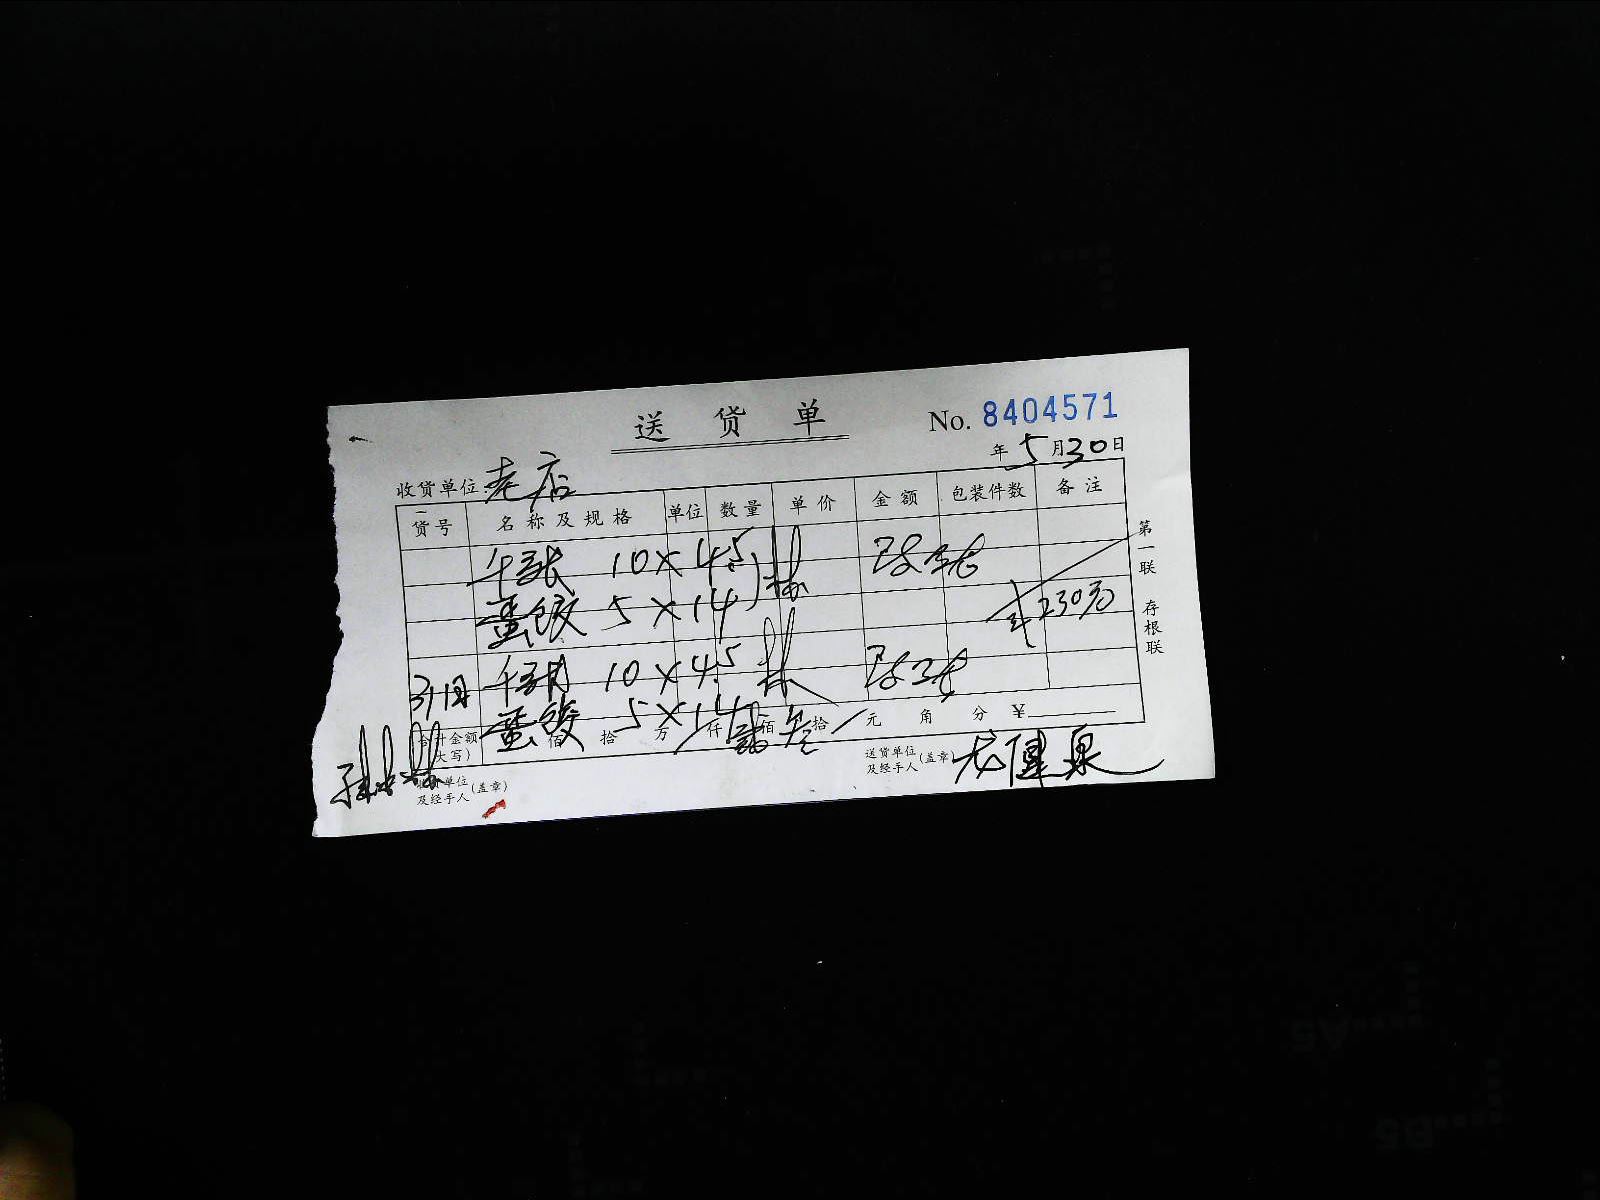 送货单 No. 8404571
年 5 月 30 日
收货单位 老店
货号 名称及规格 单位 数量 单价 金额 包装件数 备注
千张 10×4.5
蛋饺 5×14
￥230元
31日 千张 10×4.5
蛋饺 5×14
合计金额(大写) 佰 拾 万 仟 贰佰 叁拾 元 角 分 ￥
收货单位及经手人(盖章)
送货单位及经手人(盖章)
第一联 存根联